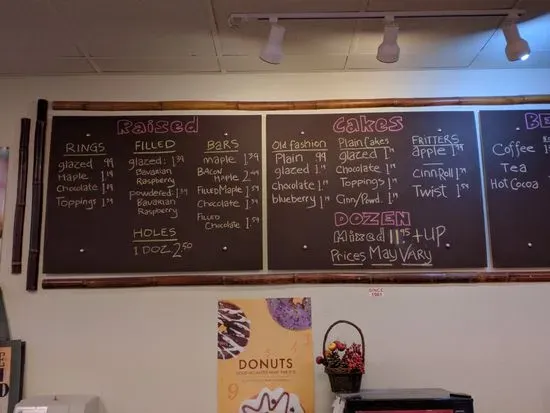 Raised
RINGS
glazed 99
Maple 1.19
Chocolate 1.19
Toppings 1.19
FILLED
glazed: 1.39
Bavarian
Raspberry
powdered: 1.39
Bavarian
Raspberry
HOLES
1 DOZ 2.50
BARS
maple 1.39
BACON
Maple 2.49
Filled Maple 1.59
Chocolate 1.39
Filled
Chocolate 1.59
Cakes
Old fashion
Plain 99
glazed
chocolate
blueberry
Plain Cakes
glazed
Chocolate
Toppings
Cinn/Powd.
FRITTERS
apple
Cinn Roll
Twist
DOZEN
Mixed 11.95 + UP
Prices May Vary
BE
Coffee
Tea
Hot Cocoa
SINCE
1981
DONUTS
9